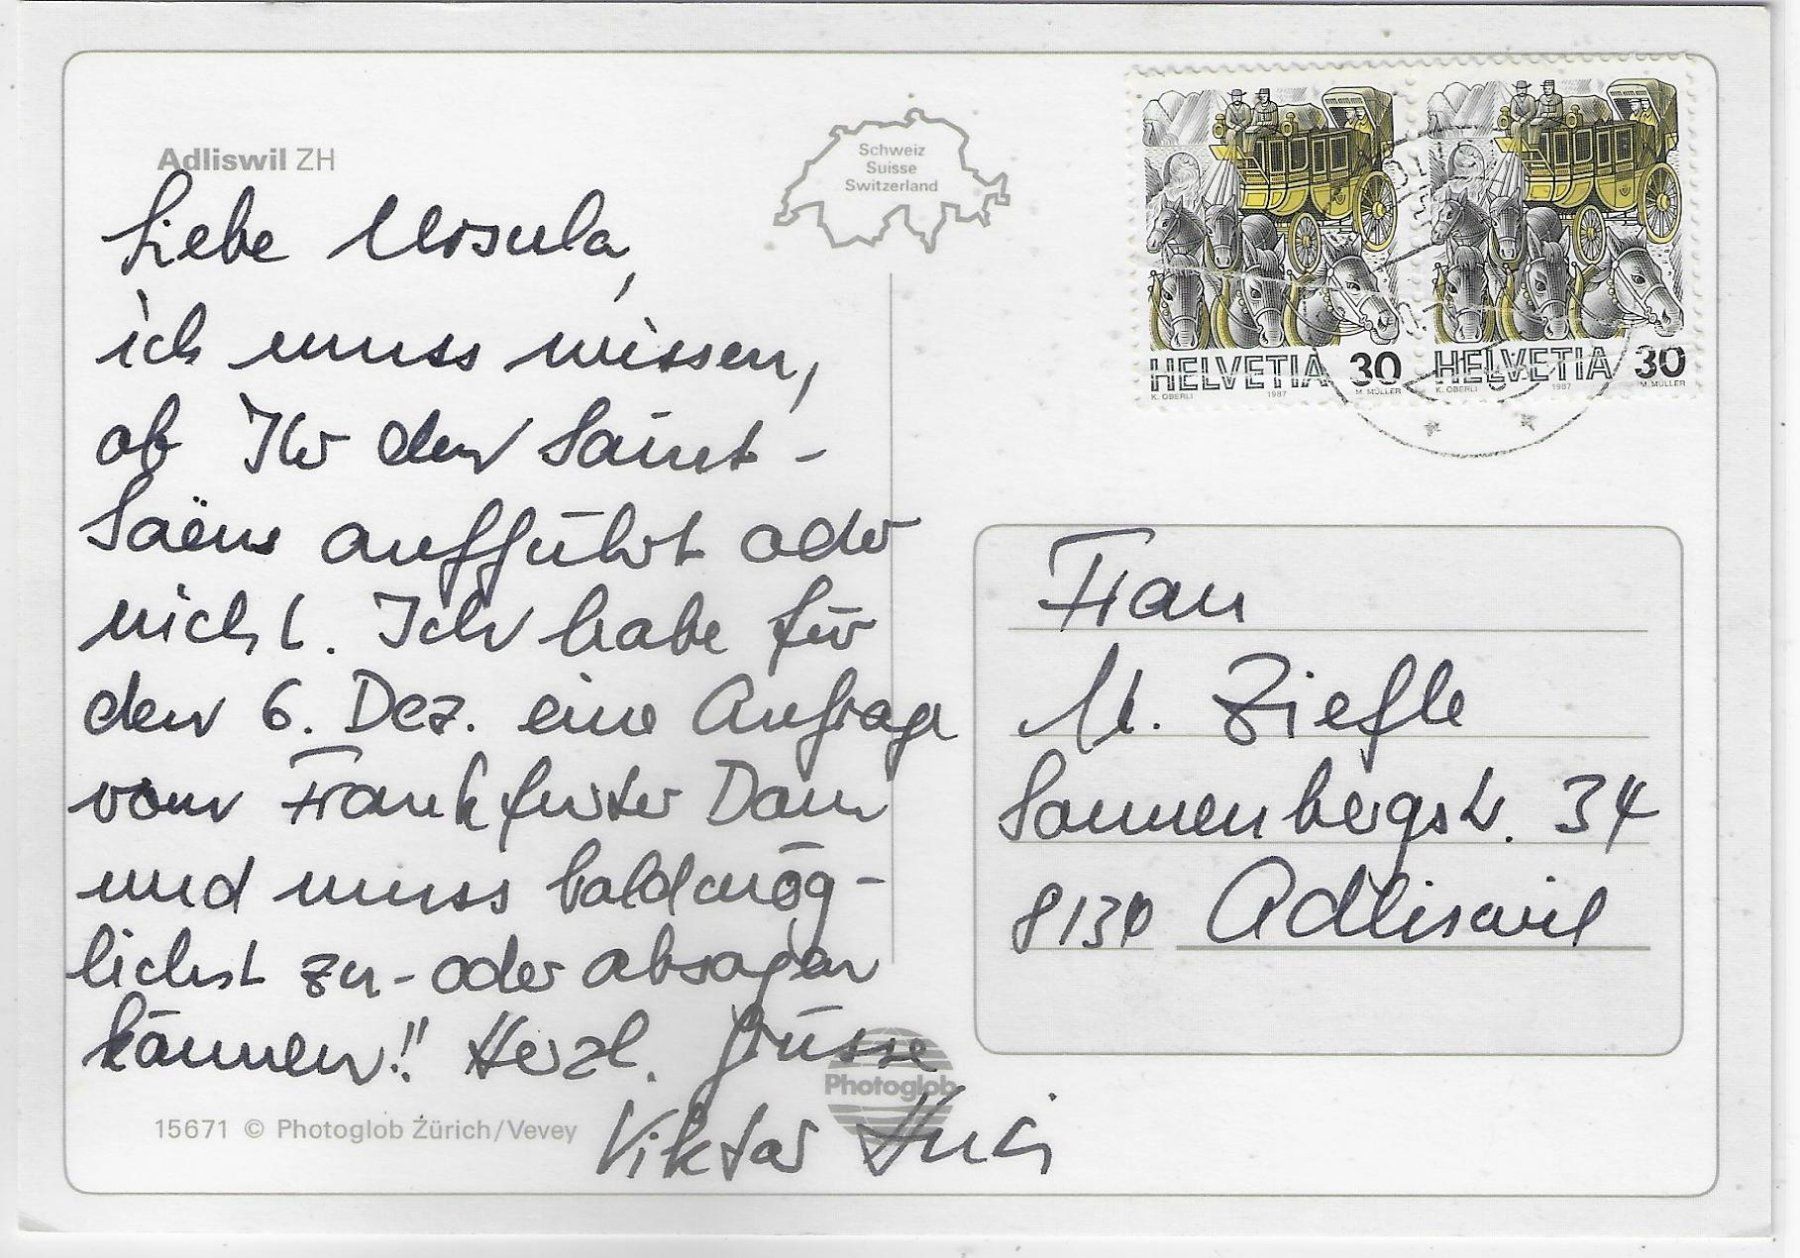 Adliswil ZH
Schweiz
Suisse
Switzerland
Liebe Ursula,
ich muss wissen,
ob Ihr den Saint-
Saëns aufführt oder
nicht. Ich habe für
den 6. Dez. eine Anfrage
vom Frankfurter Dom
und muss baldmög-
lichst zu- oder absagen
können!! Herzl. Grüsse
Viktor
15671 © Photoglob Zürich/Vevey
Photoglob
HELVETIA 30
K. OBERLI 1987 M. MÜLLER
HELVETIA 30
K. OBERLI 1987 M. MÜLLER
Frau
U. Ziefle
Sonnenbergstr. 34
8134 Adliswil